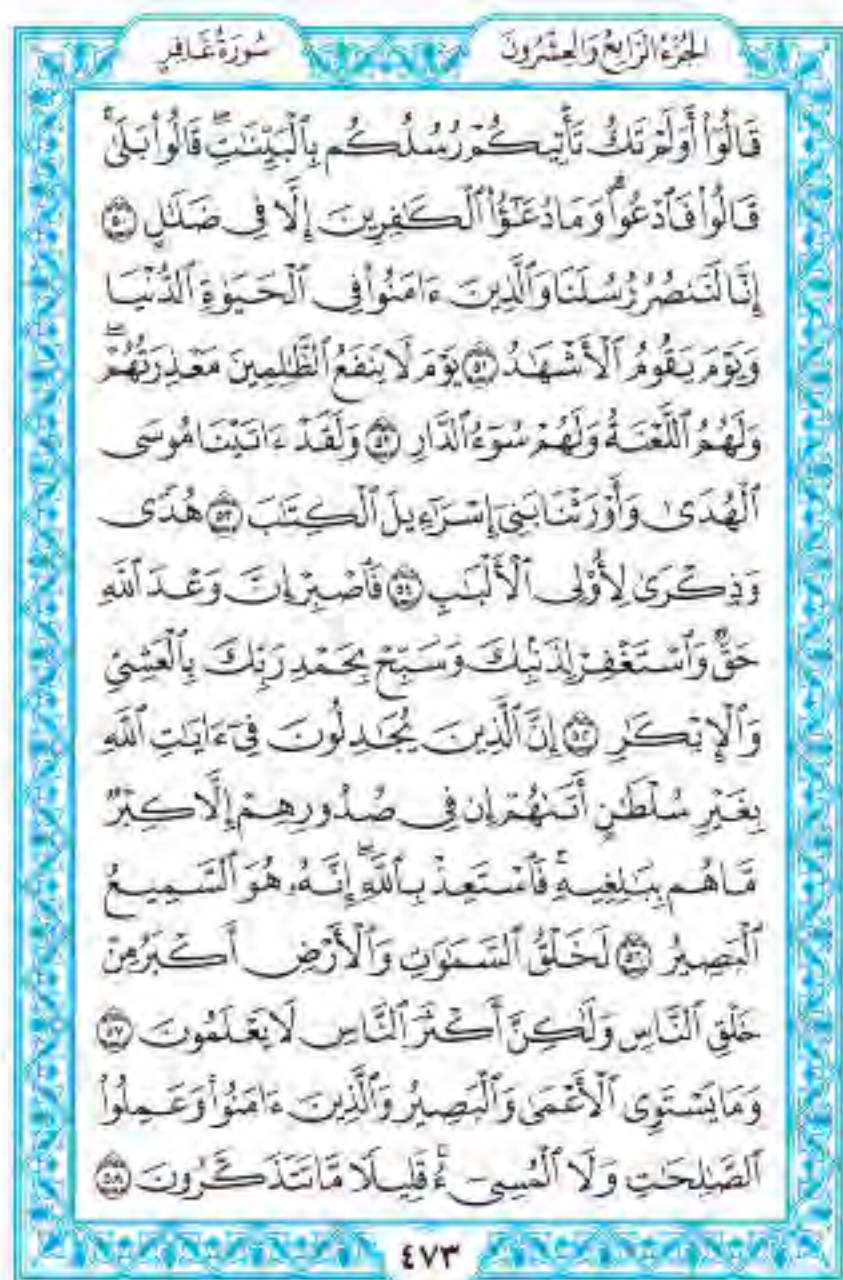 الجُزْءُ الرَّابِعُ وَالعِشْرُونَ
سُورَةُ غَافِرٍ
قَالُوٓاْ أَوَلَمْ تَكُ تَأْتِيكُمْ رُسُلُكُم بِٱلْبَيِّنَٰتِۖ قَالُواْ بَلَىٰۚ
قَالُواْ فَٱدْعُواْۗ وَمَا دُعَٰٓؤُاْ ٱلْكَٰفِرِينَ إِلَّا فِى ضَلَٰلٍ ۝٥٠
إِنَّا لَنَنصُرُ رُسُلَنَا وَٱلَّذِينَ ءَامَنُواْ فِى ٱلْحَيَوٰةِ ٱلدُّنْيَا
وَيَوْمَ يَقُومُ ٱلْأَشْهَٰدُ ۝٥١ يَوْمَ لَا يَنفَعُ ٱلظَّٰلِمِينَ مَعْذِرَتُهُمْۖ
وَلَهُمُ ٱللَّعْنَةُ وَلَهُمْ سُوٓءُ ٱلدَّارِ ۝٥٢ وَلَقَدْ ءَاتَيْنَا مُوسَى
ٱلْهُدَىٰ وَأَوْرَثْنَا بَنِىٓ إِسْرَٰٓءِيلَ ٱلْكِتَٰبَ ۝٥٣ هُدًى
وَذِكْرَىٰ لِأُوْلِى ٱلْأَلْبَٰبِ ۝٥٤ فَٱصْبِرْ إِنَّ وَعْدَ ٱللَّهِ
حَقٌّ وَٱسْتَغْفِرْ لِذَنۢبِكَ وَسَبِّحْ بِحَمْدِ رَبِّكَ بِٱلْعَشِىِّ
وَٱلْإِبْكَٰرِ ۝٥٥ إِنَّ ٱلَّذِينَ يُجَٰدِلُونَ فِىٓ ءَايَٰتِ ٱللَّهِ
بِغَيْرِ سُلْطَٰنٍ أَتَىٰهُمْ إِن فِى صُدُورِهِمْ إِلَّا كِبْرٌ
مَّا هُم بِبَٰلِغِيهِۚ فَٱسْتَعِذْ بِٱللَّهِۖ إِنَّهُۥ هُوَ ٱلسَّمِيعُ
ٱلْبَصِيرُ ۝٥٦ لَخَلْقُ ٱلسَّمَٰوَٰتِ وَٱلْأَرْضِ أَكْبَرُ مِنْ
خَلْقِ ٱلنَّاسِ وَلَٰكِنَّ أَكْثَرَ ٱلنَّاسِ لَا يَعْلَمُونَ ۝٥٧
وَمَا يَسْتَوِى ٱلْأَعْمَىٰ وَٱلْبَصِيرُ وَٱلَّذِينَ ءَامَنُواْ وَعَمِلُواْ
ٱلصَّٰلِحَٰتِ وَلَا ٱلْمُسِىٓءُۚ قَلِيلًا مَّا تَتَذَكَّرُونَ ۝٥٨
٤٧٣